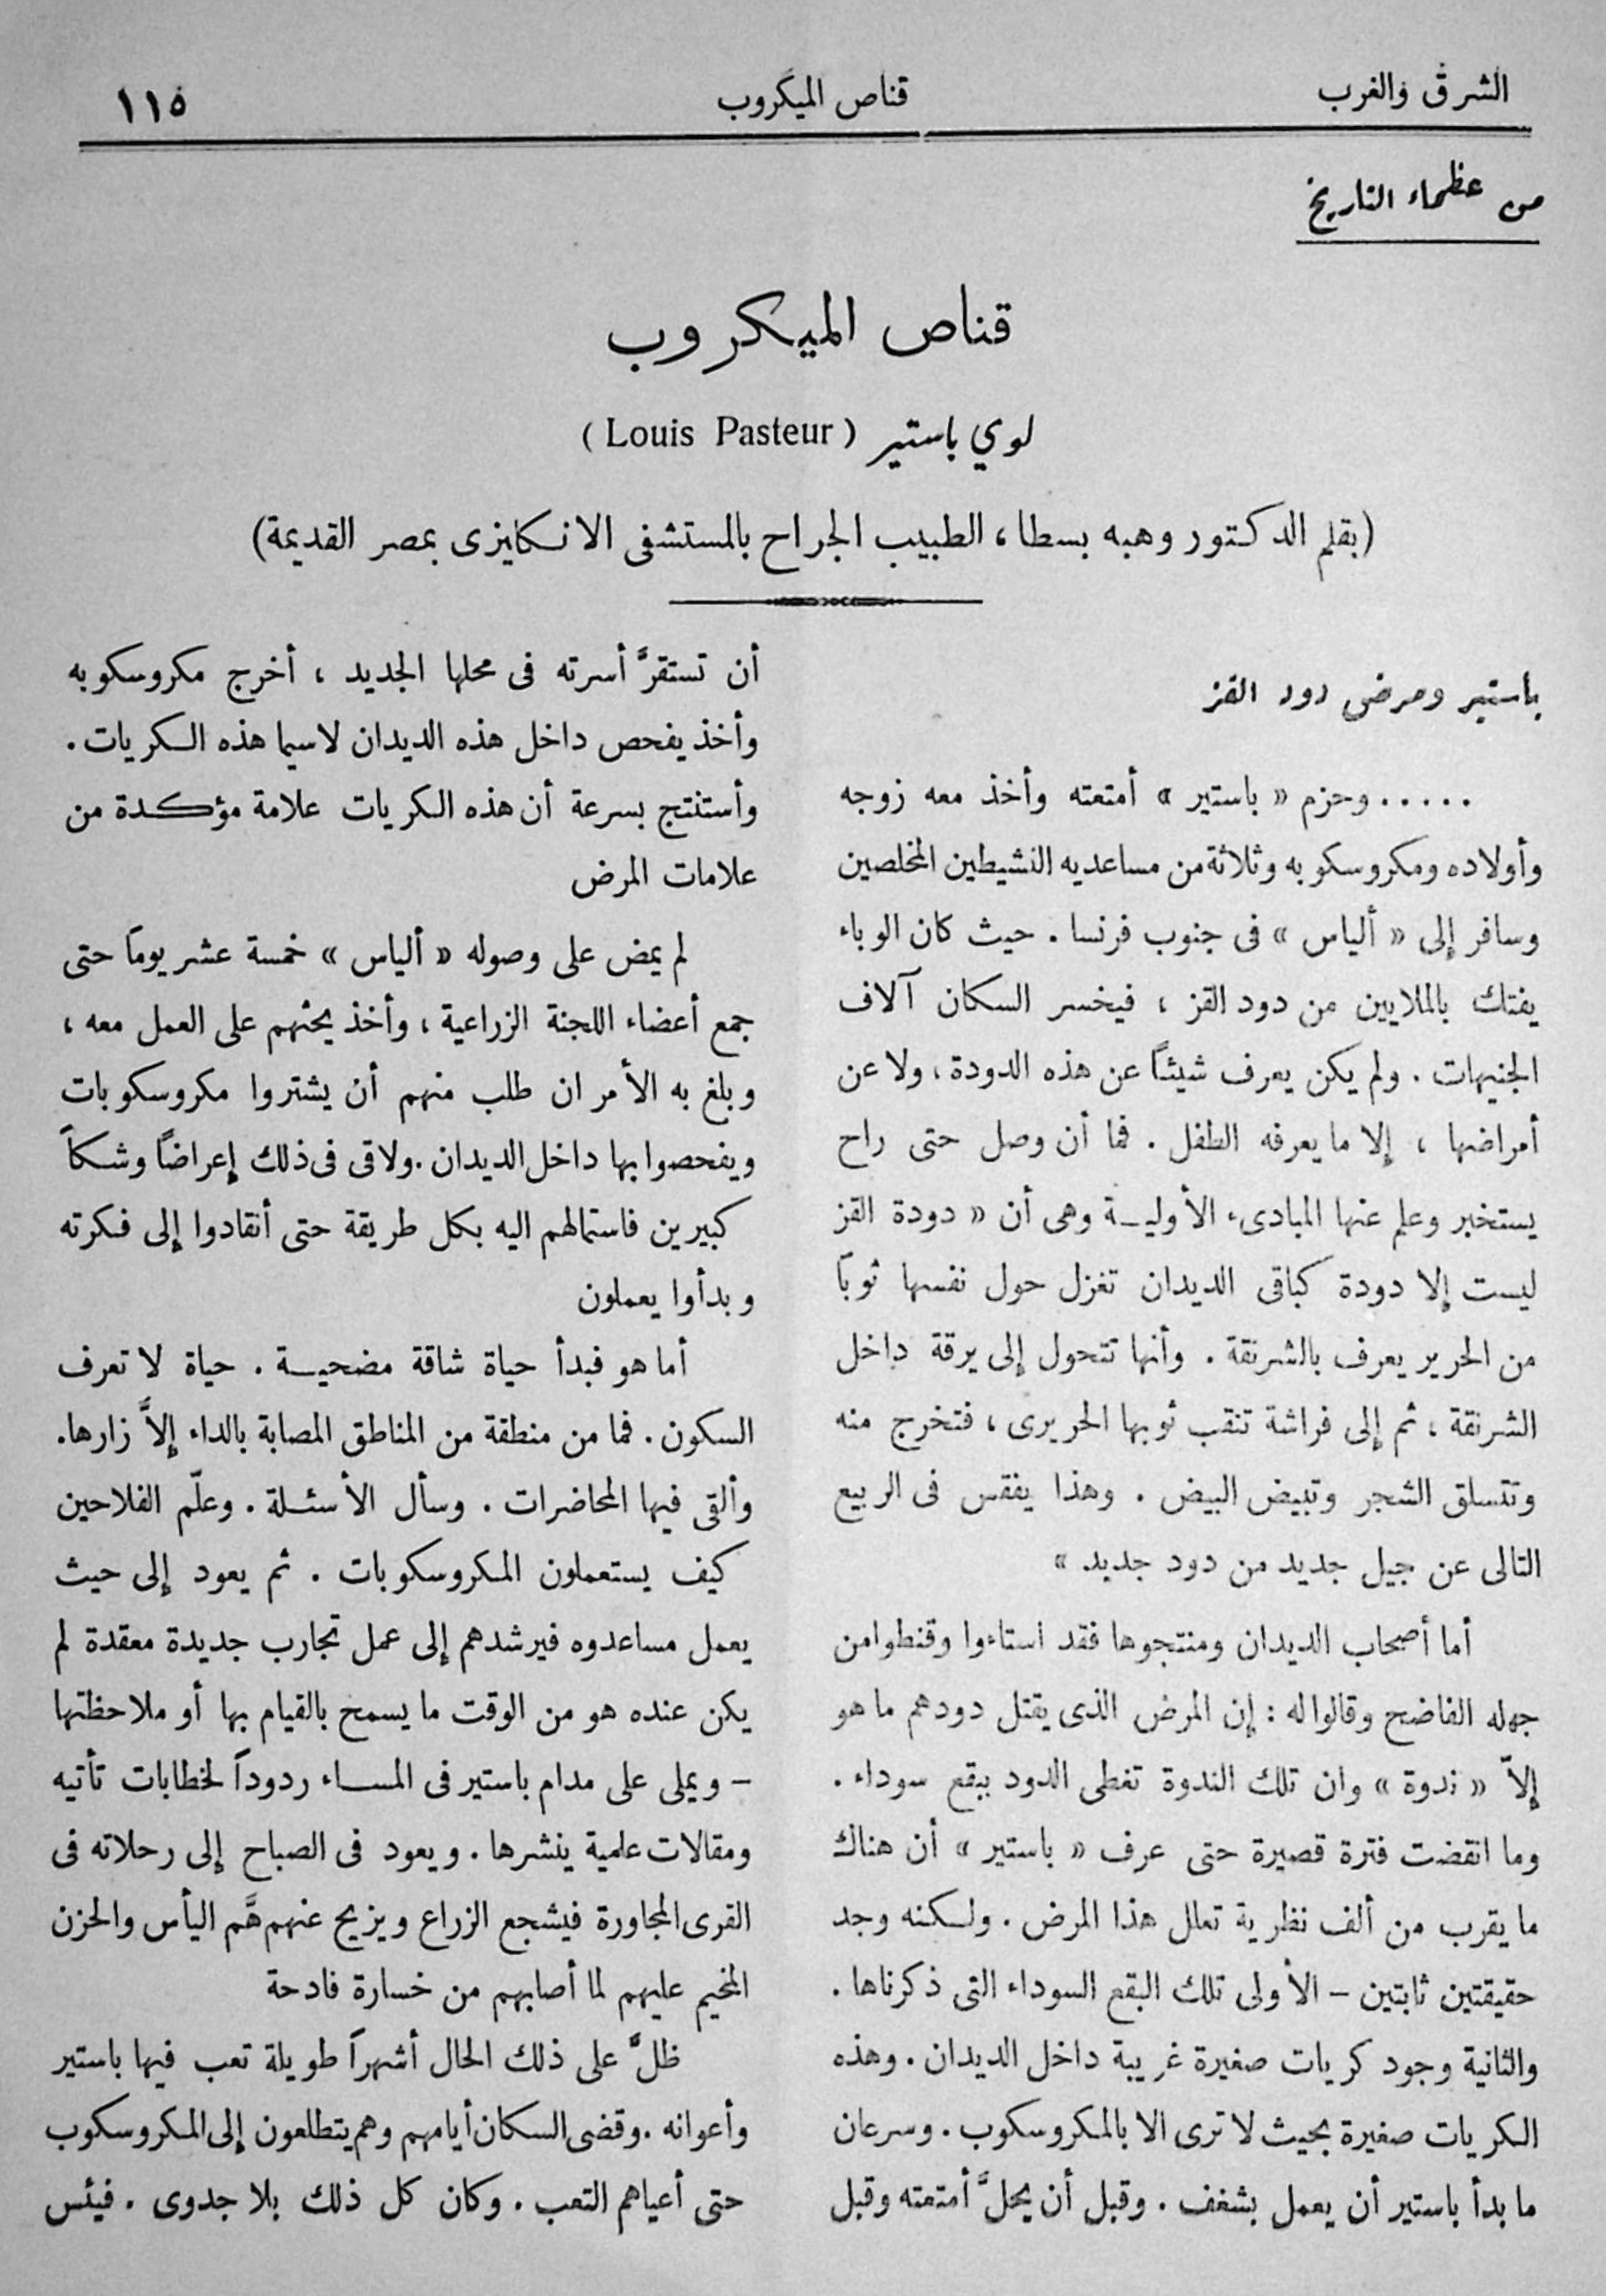 الشرق والغرب
قناص الميكروب
١١٥
من عظماء التاريخ
قناص الميكروب
لوي باستير (Louis Pasteur)
(بقلم الدكتور وهبه بسطا، الطبيب الجراح بالمستشفى الانكليزى بمصر القديمة)
باستير ومرض دود القز
..... وحزم « باستير » أمتعته وأخذ معه زوجه
وأولاده ومكروسكوبه وثلاثة من مساعديه النشيطين المخلصين
وسافر إلى « ألياس » فى جنوب فرنسا . حيث كان الوباء
يفتك بالملايين من دود القز ، فيخسر السكان آلاف
الجنيهات . ولم يكن يعرف شيئاً عن هذه الدودة ، ولا عن
أمراضها ، إلا ما يعرفه الطفل . فما أن وصل حتى راح
يستخبر وعلم عنها المبادىء الأولية وهى أن « دودة القز
ليست إلا دودة كباقى الديدان تغزل حول نفسها ثوباً
من الحرير يعرف بالشرنقة . وأنها تتحول إلى يرقة داخل
الشرنقة ، ثم إلى فراشة تنقب ثوبها الحريرى ، فتخرج منه
وتتسلق الشجر وتبيض البيض . وهذا يفقس فى الربيع
التالى عن جيل جديد من دود جديد »
أما أصحاب الديدان ومنتجوها فقد استاءوا وقنطوا من
جهله الفاضح وقالوا له : إن المرض الذى يقتل دودهم ما هو
إلاّ « ندوة » وان تلك الندوة تغطى الدود ببقع سوداء .
وما انقضت فترة قصيرة حتى عرف « باستير » أن هناك
ما يقرب من ألف نظرية تعلل هذا المرض . ولكنه وجد
حقيقتين ثابتين – الأولى تلك البقع السوداء التى ذكرناها .
والثانية وجود كريات صغيرة غريبة داخل الديدان . وهذه
الكريات صغيرة بحيث لا ترى الا بالمكروسكوب . وسرعان
ما بدأ باستير أن يعمل بشغف . وقبل أن يحلَّ أمتعته وقبل
أن تستقرَّ أسرته فى محلها الجديد ، أخرج مكروسكوبه
وأخذ يفحص داخل هذه الديدان لاسيما هذه الكريات .
وأستنتج بسرعة أن هذه الكريات علامة مؤكدة من
علامات المرض
لم يمض على وصوله « ألياس » خمسة عشر يوماً حتى
جمع أعضاء اللجنة الزراعية ، وأخذ يحثهم على العمل معه ،
وبلغ به الأمر ان طلب منهم أن يشتروا مكروسكوبات
ويفحصوا بها داخل الديدان . ولاقى فى ذلك إعراضاً وشكاً
كبيرين فاستمالهم اليه بكل طريقة حتى أنقادوا إلى فكرته
وبدأوا يعملون
أما هو فبدأ حياة شاقة مضحية . حياة لا تعرف
السكون . فما من منطقة من المناطق المصابة بالداء إلاَّ زارها .
وألقى فيها المحاضرات . وسأل الأسئلة . وعلّم الفلاحين
كيف يستعملون المكروسكوبات . ثم يعود إلى حيث
يعمل مساعدوه فيرشدهم إلى عمل تجارب جديدة معقدة لم
يكن عنده هو من الوقت ما يسمح بالقيام بها أو ملاحظتها
– ويملى على مدام باستير فى المساء ردوداً لخطابات تأتيه
ومقالات علمية ينشرها . ويعود فى الصباح إلى رحلاته فى
القرى المجاورة فيشجع الزراع ويزيح عنهم همَّ اليأس والحزن
المخيم عليهم لما أصابهم من خسارة فادحة
ظلَّ على ذلك الحال أشهراً طويلة تعب فيها باستير
وأعوانه . وقضى السكان أيامهم وهم يتطلعون إلى المكروسكوب
حتى أعياهم التعب . وكان كل ذلك بلا جدوى . فيئس